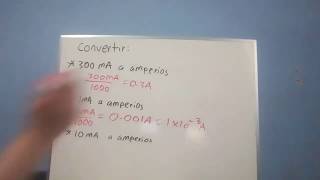 Convertir:
* 300 mA a amperios
300mA
1000
= 0.3A
mA a amperios
mA
1000
= 0.001A = 1x10⁻³A
* 10 mA a amperios